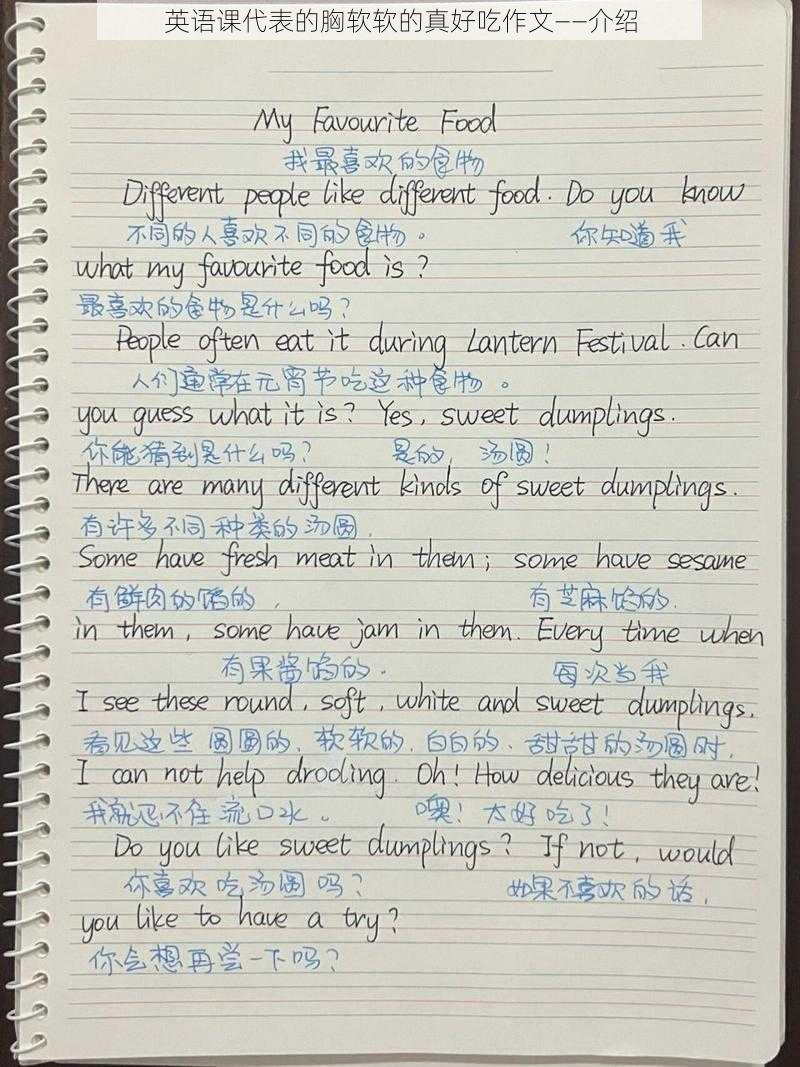 英语课代表的胸软软的真好吃作文——介绍
My Favourite Food
我最喜欢的食物
Different people like different food. Do you know
不同的人喜欢不同的食物。 你知道我
what my favourite food is?
最喜欢的食物是什么吗?
People often eat it during Lantern Festival. Can
人们通常在元宵节吃这种食物。
you guess what it is? Yes, sweet dumplings.
你能猜到是什么吗? 是的,汤圆!
There are many different kinds of sweet dumplings.
有许多不同种类的汤圆.
Some have fresh meat in them; some have sesame
有鲜肉的馅的, 有芝麻馅的.
in them, some have jam in them. Every time when
有果酱馅的. 每次当我
I see these round, soft, white and sweet dumplings,
看见这些圆圆的、软软的、白白的、甜甜的汤圆时,
I can not help drooling. Oh! How delicious they are!
我就忍不住流口水。 噢! 太好吃了!
Do you like sweet dumplings? If not, would
你喜欢吃汤圆吗? 如果不喜欢的话,
you like to have a try?
你会想再尝一下吗?